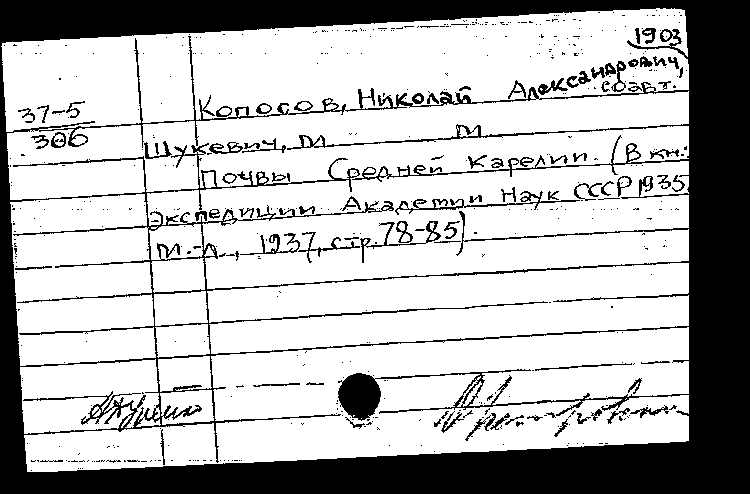 1903
37-5
306
Копосов, Николай Александрович,
соавт.
Шукевич, М М
Почвы Средней Карелии. (В кн.:
Экспедиции Академии Наук СССР 1935.
М.-Л., 1937, стр. 78-85).